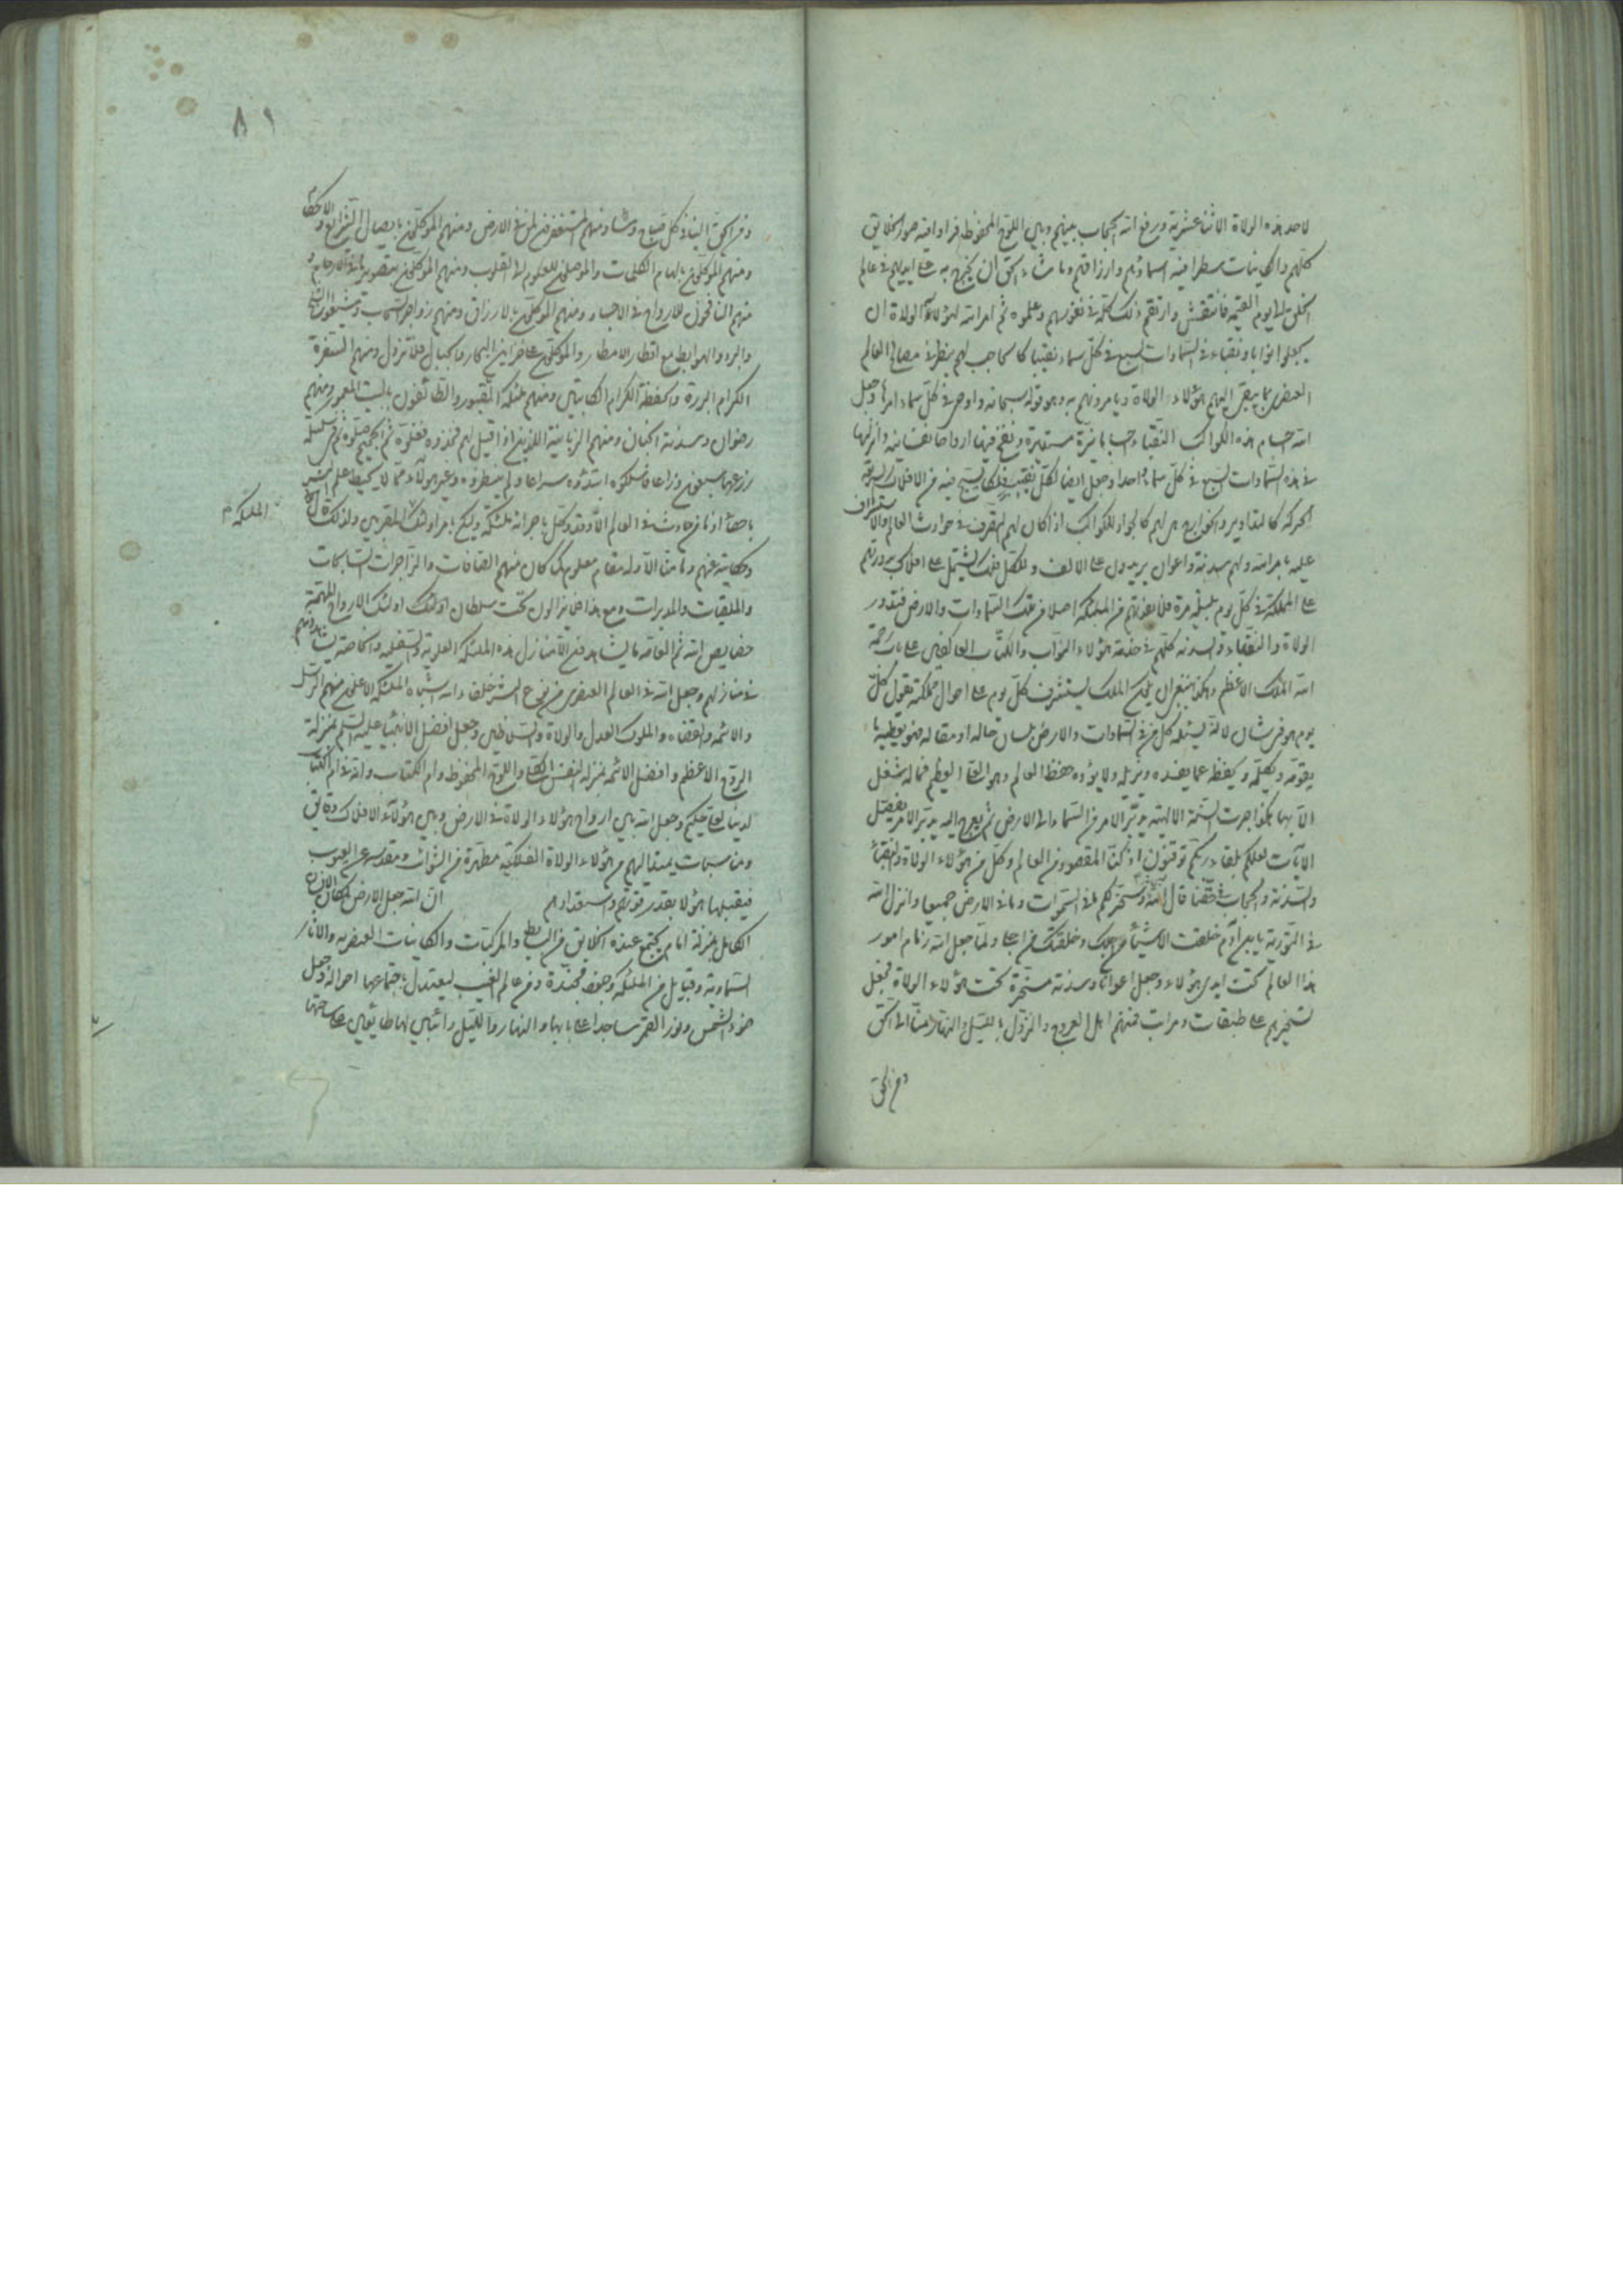 لاحد هذه الولاة الاثنا عشرية ورفع الله الحجاب بينهم وبين اللوح المحفوظ فراوا فيه صور الخلايق
كلهم والكاينات مسطرا فيه اسماؤهم وارزاقهم وما شاء الحق ان يجريه على ايديهم في عالم
الخلق الى يوم القيمة فانتقش وارتقم ذلك كله في نفوسهم وعلموه ثم امر الله لهؤلاء الولاة ان
يجعلوا نوابا ونقباء في السماوات السبع في كل سماء نقيبا كالحاجب لهم ينظر في مصالح العالم
العنصري بما يبقي اليهم هؤلاء الولاة ويامرونهم به وهو قوله سبحانه واوحى في كل سماء امرها وجعل
الله اجسام هذه الكواكب النقباء اجساما نيرة مستديرة ونفخ فيها ارواحا نفسانية وانزلها
في هذه السماوات السبع في كل سماء واحدا وجعل ايضا لكل نقيب فلكا يسبح فيه من الافلاك
الحركة كالتداوير والخوارج هي لهم كالجوار للكواكب اذ كان لهم التصرف في حوادث العالم والاستشراف
عليه بامر الله ولهم سدنة واعوان يزيدون على الالف ولكل فلك يشتمل على افلاك يدورهم
على المملكة في كل يوم بليلته مرة فلا يفوتهم من المملكة اصلا من ملك السماوات والارض فتدور
الولاة والنقباء والسدنة كلهم في خدمة هؤلاء النواب والكتاب العاكفين على باب رحمة
الله الملك الاعظم وهكذا ينبغي ان يكون الملك يستشرف كل يوم على احوال مملكته يقول كل
يوم هو في شان لانه يسئله كل من في السماوات والارض بلسان حاله او مقاله فهو يعطيه ما
يقومه ويكمله ويحفظه عما يفسده ويزيله ولا يؤده حفظ العالم وهو العلي العظيم فما له شغل
الا بها هكذا جرت السنة الالهية يدبر الامر من السماء الى الارض ثم يعرج اليه يدبر الامر يفصل
الايات لعلكم بلقاء ربكم توقنون اذ كنا المقصود من العالم وكل من هؤلاء الولاة والنقباء
والسدنة والحجاب في حقنا قال الله وسخر لكم ما في السموات وما في الارض جميعا وانزل الله
في التورية يابن ادم خلقت الاشياء من اجلك وخلقتك من اجلي ولما جعل الله زمام امور
هذا العالم تحت ايدي هؤلاء وجعل اعوانا وسدنة مسخرة تحت هؤلاء الولاة فجعل
تسخيرهم على طبقات ومراتب فمنهم اهل العروج والنزول بالليل والنهار منا الى الحق
ومن الحق
٨١
ومن الحق الينا في كل صباح ومساء ومنهم المستغفرون لمن في الارض ومنهم الموكلون بايصال الشرايع والاحكام
ومنهم الموكلون بالهام الكلمات والموصلون للعلوم الى القلوب ومنهم الموكلون بتصوير ما في الارحام و
منهم النافخون للارواح في الاجساد ومنهم الموكلون بالارزاق ومنهم زواجر السحاب ومشيعوا الثلج
والبرد والهوابط مع اقطار الامطار والموكلون على خزاين البحار والجبال فلا تزول ومنهم السفرة
الكرام البررة والحفظة الكرام الكاتبين ومنهم ملئكة القبور والطائفون بالبيت المعمور ومنهم
رضوان وسدنة الجنان ومنهم الزبانية اللذين اذا قيل لهم خذوه فغلوه ثم الجحيم صلوه ثم في سلسلة
ذرعها سبعون ذراعا فاسلكوه ابتدؤه سراعا ولم ينظروه وغير هؤلاء مما لا يحيط علم البشر
باحصائه اذ ما من حادث في العالم الا وقد وكل باجرائه ملئكة وليكم بامر اولئك المقربين ولذلك قال الله
الملئكة
وحكاية عنهم وما منا الا وله مقام معلوم كان منهم الصافات والزاجرات السابحات
والملقيات والمدبرات ومع هذا فما يزالون تحت سلطان اولئك اولئك الارواح المهيمة
خصايص الله ثم العامة ما يشاهدون الا منازل هذه الملئكة العلوية والسفلية والخاصة يشاهدونهم
في منازلهم وجعل الله في العالم العنصري من نوع البشر خلفاء الله اشباه الملئكة الاعلون منهم الرسل
والائمة والقضاة والملوك العدل والولاة والسلاطين وجعل افضل الانبياء عليه السلم بمنزلة
الروح الاعظم وافضل الائمة بمنزلة النفس الكلي واللوح المحفوظ وام الكتاب وانه في ام الكتاب
لدينا لعلي حكيم وجعل الله بين ارواح هؤلاء الولاة في الارض وبين هؤلاء الافلاك دقايق
ومناسبات يمتد اليهم من هؤلاء الولاة الفلكية مطهرة من الشوائب ومقدسة عن العيوب
فيقبلها هؤلا بقدر قوتهم واستعدادهم ان الله جعل الارض لمكان الانسان
الكامل بمنزلة امام يجتمع عنده الخلايق من البسايط والمركبات والكاينات العنصرية والاثار
السماوية وقبايل من الملئكة وجنود مجندة ومن عالم الغيب ليعتدل باجتماعها احواله وجعل
ضوء الشمس ونور القمر ساجدا على بابها والنهار والليل دائبين لها طائعين على ساحتها